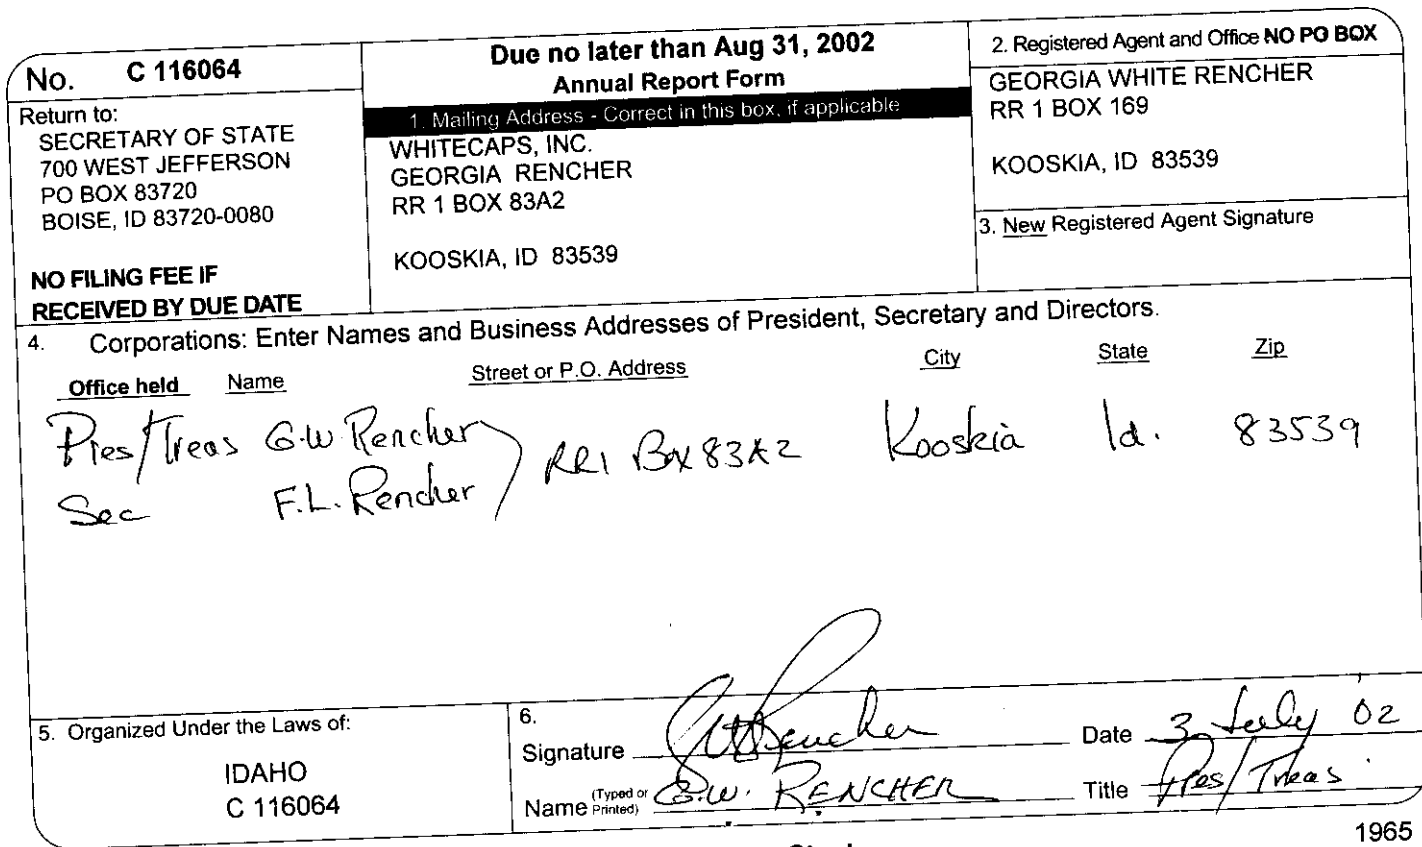 No. C 116064
Return to:
SECRETARY OF STATE
700 WEST JEFFERSON
PO BOX 83720
BOISE, ID 83720-0080
NO FILING FEE IF
RECEIVED BY DUE DATE
Due no later than Aug 31, 2002
Annual Report Form
1. Mailing Address - Correct in this box, if applicable
WHITECAPS, INC.
GEORGIA RENCHER
RR 1 BOX 83A2
KOOSKIA, ID 83539
2. Registered Agent and Office NO PO BOX
GEORGIA WHITE RENCHER
RR 1 BOX 169
KOOSKIA, ID 83539
3. New Registered Agent Signature
4. Corporations: Enter Names and Business Addresses of President, Secretary and Directors.
Office held Name Street or P.O. Address City State Zip
Pres/Treas G.W. Rencher RR1 Box 83A2 Kooskia Id. 83539
Sec F.L. Rencher
5. Organized Under the Laws of:
IDAHO
C 116064
6.
Signature GW Rencher Date 3 July '02
Name (Typed or Printed) G.W. RENCHER Title Pres/Treas.
1965